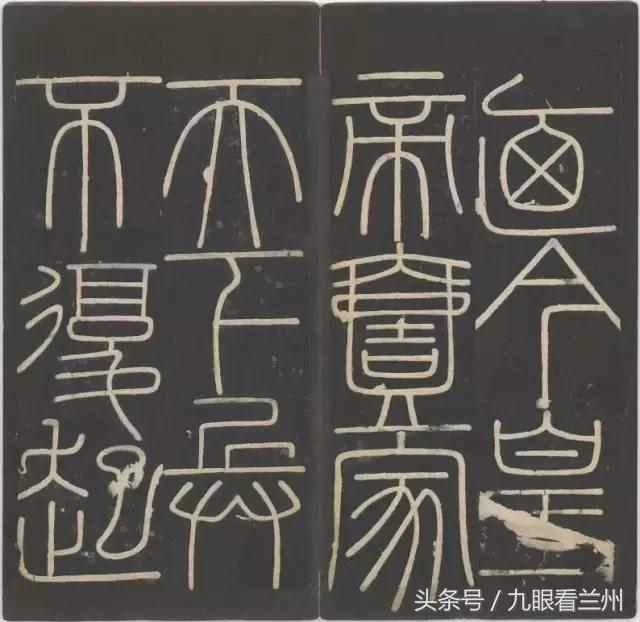 廼今皇
帝壹家
天下兵
不復起
头条号 / 九眼看兰州